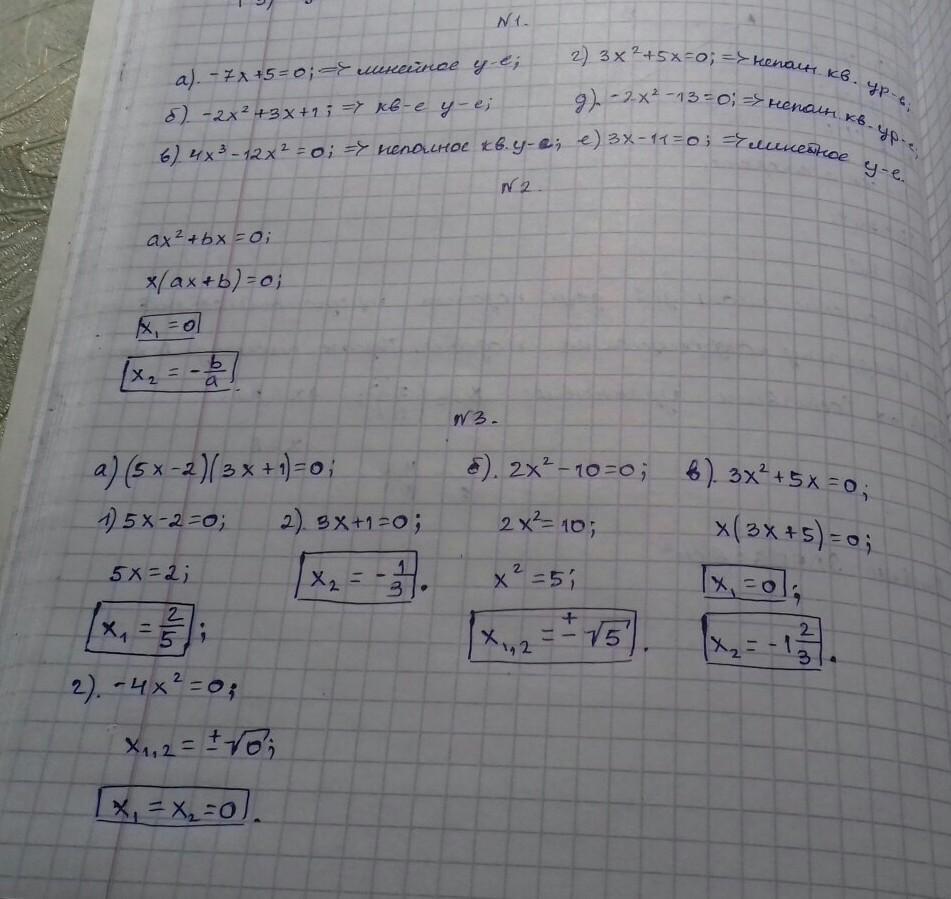 N1.
а). -7x+5=0; => линейное у-е;
г) 3x²+5x=0; => неполн. кв. ур-е;
б) -2x²+3x+1; => кв-е у-е;
д). -2x²-13=0; => неполн. кв. ур-е;
в) 4x³-12x²=0; => неполное кв. у-е;
е) 3x-11=0; => линейное у-е.
N2.
ax²+bx=0;
x(ax+b)=0;
x₁=0
x₂ = -b/a.
N3.
а) (5x-2)(3x+1)=0;
1) 5x-2=0;
5x=2;
x₁ = 2/5;
2). 3x+1=0;
x₂ = -1/3.
б). 2x²-10=0;
2x²=10;
x²=5;
x₁,₂ = ±√5.
в). 3x²+5x=0;
x(3x+5)=0;
x₁=0;
x₂=-1 2/3.
г). -4x²=0;
x₁,₂ = ±√0;
x₁=x₂=0.